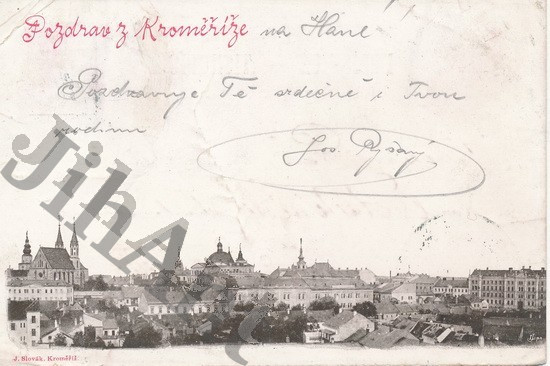 Pozdrav z Kroměříže na Hané
Pozdravuje Tě srdečně i Tvou
rodinu
Jos. Ryšavý
JihArt
J. Slovák, Kroměříž.